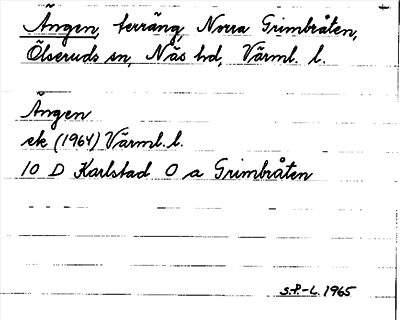 Ängen, terräng, Norra Grimbråten,
Ölseruds sn, Näs hd, Värml. l.
Ängen
ek (1964) Värml. l.
10 D Karlstad O a Grimbråten
S.P-L. 1965